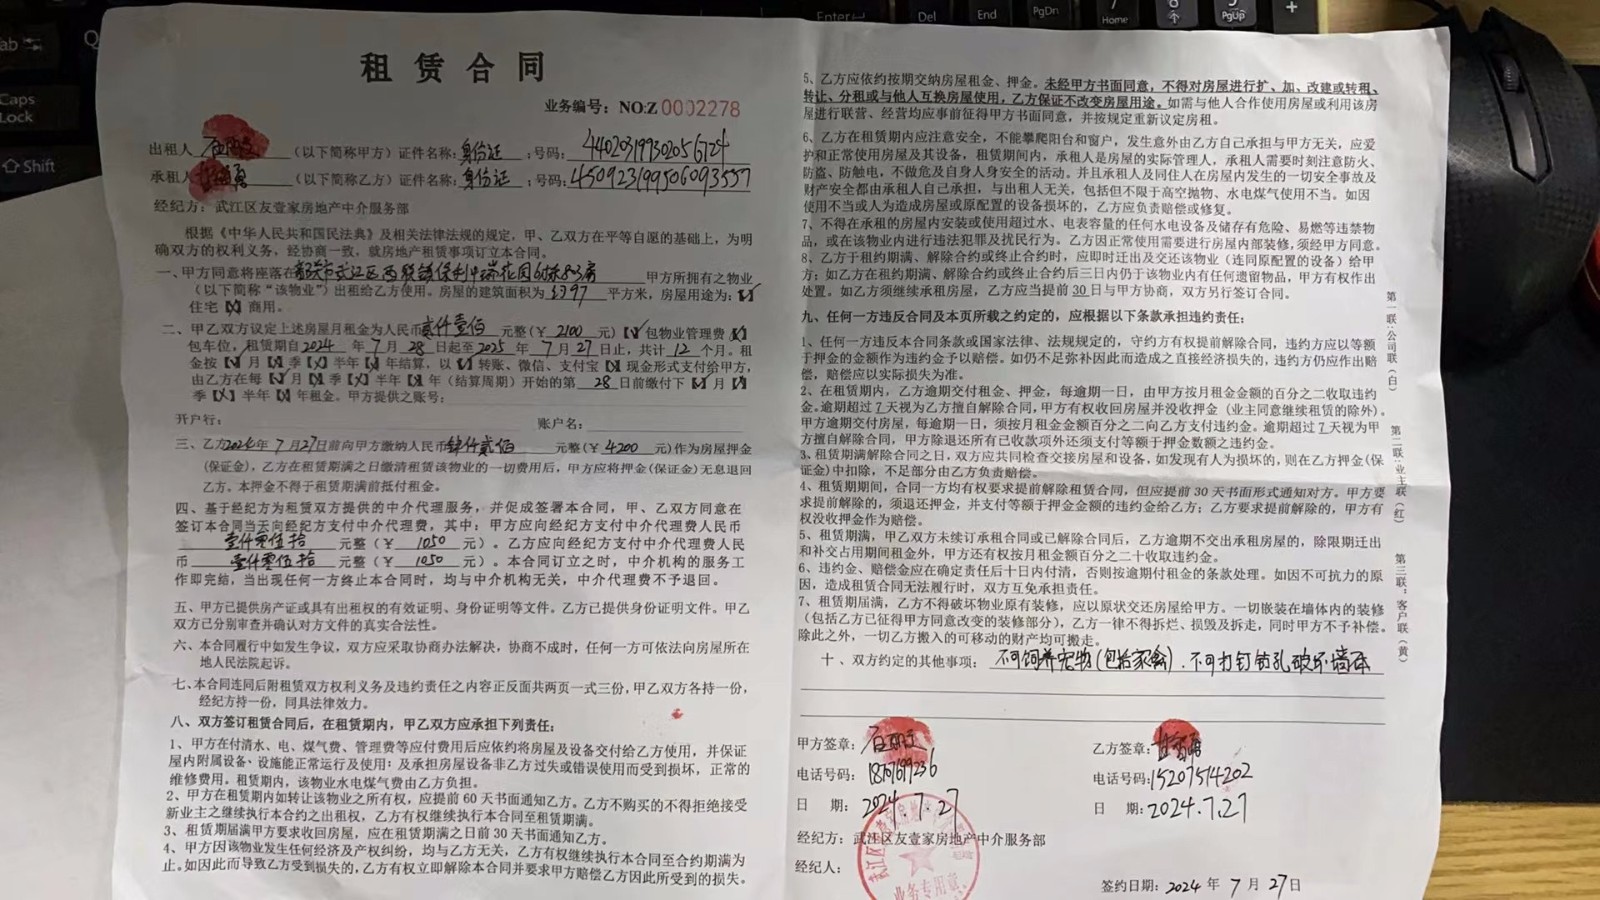 租赁合同
业务编号：NO:Z 0002278
出租人 （以下简称甲方）证件名称：身份证；号码：440203199302056724
承租人 （以下简称乙方）证件名称：身份证；号码：450923199506093557
经纪方：武江区友壹家房地产中介服务部
根据《中华人民共和国民法典》及相关法律法规的规定，甲、乙双方在平等自愿的基础上，为明
确双方的权利义务，经协商一致，就房地产租赁事项订立本合同。
一、甲方同意将座落在韶关市武江区西联镇保利中瑞花园 803房 甲方所拥有之物业
（以下简称“该物业”）出租给乙方使用。房屋的建筑面积为 97 平方米，房屋用途为：【√】
住宅【X】商用。
二、甲乙双方议定上述房屋月租金为人民币贰仟壹佰 元整（￥ 2100 元)【√】包物业管理费【X】
包车位，租赁期自2024 年 7 月 28 日起至2025 年 7 月 27日止，共计 12 个月。租
金按【√】月【X】季【X】半年【X】年结算，以【√】转账、微信、支付宝【X】现金形式支付给甲方，
由乙方在每【√】月【X】季【X】半年【X】年（结算周期）开始的第 28 日前缴付下【√】月【X】
季【X】半年【X】年租金。甲方提供之账号：
开户行： 账户名：
三、乙方2024年 7 月27日前向甲方缴纳人民币肆仟贰佰 元整（￥ 4200 元)作为房屋押金
(保证金)，乙方在租赁期满之日缴清租赁该物业的一切费用后，甲方应将押金(保证金)无息退回
乙方。本押金不得于租赁期满前抵付租金。
四、基于经纪方为租赁双方提供的中介代理服务，并促成签署本合同，甲、乙双方同意在
签订本合同当天向经纪方支付中介代理费，其中：甲方应向经纪方支付中介代理费人民币
壹仟零伍拾 元整（￥ 1050 元）。乙方应向经纪方支付中介代理费人民
币 壹仟零伍拾 元整（￥ 1050 元）。本合同订立之时，中介机构的服务工
作即完结，当出现任何一方终止本合同时，均与中介机构无关，中介代理费不予退回。
五、甲方已提供房产证或具有出租权的有效证明、身份证明等文件。乙方已提供身份证明文件。甲乙
双方已分别审查并确认对方文件的真实合法性。
六、本合同履行中如发生争议，双方应采取协商办法解决，协商不成时，任何一方可依法向房屋所在
地人民法院起诉。
七、本合同连同后附租赁双方权利义务及违约责任之内容正反面共两页一式三份，甲乙双方各持一份，
经纪方持一份，同具法律效力。
八、双方签订租赁合同后，在租赁期内，甲乙双方应承担下列责任：
1、甲方在付清水、电、煤气费、管理费等应付费用后应依约将房屋及设备交付给乙方使用，并保证
屋内附属设备、设施能正常运行及使用；及承担房屋设备非乙方过失或错误使用而受到损坏，正常的
维修费用。租赁期内，该物业水电煤气费由乙方负担。
2、甲方在租赁期内如转让该物业之所有权，应提前 60 天书面通知乙方。乙方不购买的不得拒绝接受
新业主之继续执行本合约之出租权，乙方有权继续执行本合同至租赁期满。
3、租赁期届满甲方要求收回房屋，应在租赁期满之日前 30 天书面通知乙方。
4、甲方因该物业发生任何经济及产权纠纷，均与乙方无关，乙方有权继续执行本合同至合约期满为
止。如因此而导致乙方受到损失的，乙方有权立即解除本合同并要求甲方赔偿乙方因此所受到的损失。
5、乙方应依约按期交纳房屋租金、押金。未经甲方书面同意，不得对房屋进行扩、加、改建或转租、
转让、分租或与他人互换房屋使用，乙方保证不改变房屋用途。如需与他人合作使用房屋或利用该房
屋进行联营、经营均应事前征得甲方书面同意，并按规定重新议定房租。
6、乙方在租赁期内应注意安全，不能攀爬阳台和窗户，发生意外由乙方自己承担与甲方无关，应爱
护和正常使用房屋及其设备，租赁期间内，承租人是房屋的实际管理人，承租人需要时刻注意防火、
防盗、防触电，不做危及自身人身安全的活动。并且承租人及同住人在房屋内发生的一切安全事故及
财产安全都由承租人自己承担，与出租人无关，包括但不限于高空抛物、水电煤气使用不当。如因
使用不当或人为造成房屋或原配置的设备损坏的，乙方应负责赔偿或修复。
7、不得在承租的房屋内安装或使用超过水、电表容量的任何水电设备及储存有危险、易燃等违禁物
品，或在该物业内进行违法犯罪及扰民行为。乙方因正常使用需要进行房屋内部装修，须经甲方同意。
8、乙方于租约期满、解除合约或终止合约时，应即时迁出及交还该物业（连同原配置的设备）给甲
方；如乙方在租约期满、解除合约或终止合约后三日内仍于该物业内有任何遗留物品，甲方有权作出
处置。如乙方须继续承租房屋，乙方应当提前 30 日与甲方协商，双方另行签订合同。
九、任何一方违反合同及本页所载之约定的，应根据以下条款承担违约责任：
1、任何一方违反本合同条款或国家法律、法规规定的，守约方有权提前解除合同，违约方应以等额
于押金的金额作为违约金予以赔偿。如仍不足弥补因此而造成之直接经济损失的，违约方仍应作出赔
偿，赔偿应以实际损失为准。
2、在租赁期内，乙方逾期交付租金、押金，每逾期一日，由甲方按月租金金额的百分之二收取违约
金。逾期超过 7 天视为乙方擅自解除合同，甲方有权收回房屋并没收押金（业主同意继续租赁的除外)。
甲方逾期交付房屋，每逾期一日，须按月租金金额百分之二向乙方支付违约金。逾期超过 7 天视为甲
方擅自解除合同，甲方除退还所有已收款项外还须支付等额于押金数额之违约金。
3、租赁期满解除合同之日，双方应共同检查交接房屋和设备，如发现有人为损坏的，则在乙方押金(保
证金)中扣除，不足部分由乙方负责赔偿。
4、租赁期期间，合同一方均有权要求提前解除租赁合同，但应提前 30 天书面形式通知对方。甲方要
求提前解除的，须退还押金，并支付等额于押金金额的违约金给乙方；乙方要求提前解除的，甲方有
权没收押金作为赔偿。
5、租赁期满，甲乙双方未续订承租合同或已解除合同后，乙方逾期不交出承租房屋的，除限期迁出
和补交占用期间租金外，甲方还有权按月租金额百分之二十收取违约金。
6、违约金、赔偿金应在确定责任后十日内付清，否则按逾期付租金的条款处理。如因不可抗力的原
因，造成租赁合同无法履行时，双方互免承担责任。
7、租赁期届满，乙方不得破坏物业原有装修，应以原状交还房屋给甲方。一切嵌装在墙体内的装修
（包括乙方已征得甲方同意改变的装修部分)，乙方一律不得拆烂、损毁及拆走，同时甲方不予补偿。
除此之外，一切乙方搬入的可移动的财产均可搬走。
十、双方约定的其他事项：不可饲养宠物(包括家禽)、不可打钉钻孔破坏墙体
第一联：公司联（白）
第二联：业主联（红）
第三联：客户联（黄）
甲方签章：
乙方签章：
电话号码：
电话号码：15207514202
日 期：2024.7.27
日 期：2024.7.27
经纪方：武江区友壹家房地产中介服务部
经纪人：
业务专用章
签约日期：2024 年 7 月 27日
Enter
Del
End
PgDn
7
Home
8
9
PgUp
+
Tab
Q
Caps
Lock
Shift